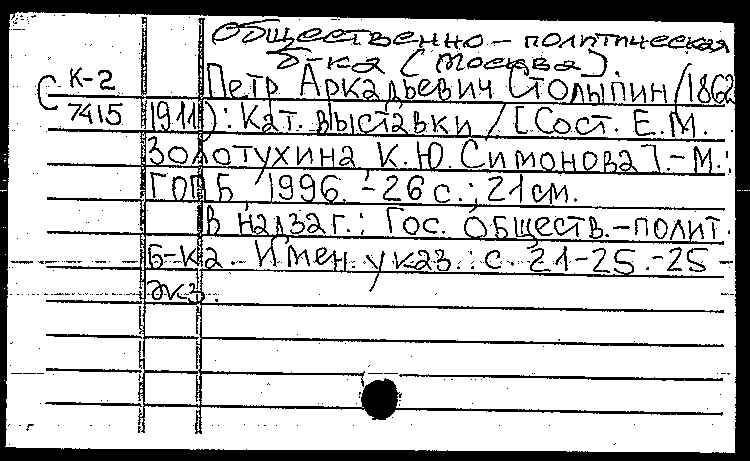 Общественно-политическая
б-ка (Москва).
С К-2 Петр Аркадьевич Столыпин (1862
7415 1911): Кат. выставки / [Сост. Е.М.
Золотухина, К.Ю. Симонова]. - М.:
ГОПБ, 1996. - 26 с.; 21 см.
В надзаг.: Гос. обществ.-полит.
б-ка. - Имен. указ.: с. 21-25. - 25
экз.